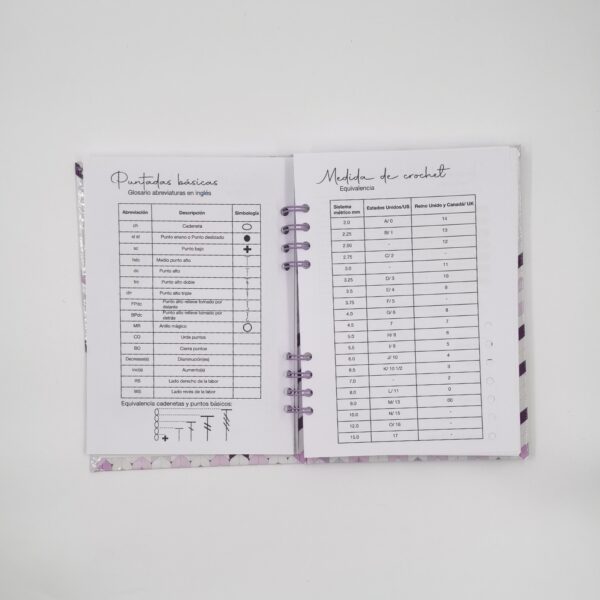 Puntadas básicas
Glosario abreviaturas en inglés
Abreviación Descripción Simbología
ch Cadeneta
sl st Punto enano o Punto deslizado
sc Punto bajo
hdc Medio punto alto
dc Punto alto
trc Punto alto doble
dtr Punto alto triple
FPdc Punto alto relieve tomado por delante
BPdc Punto alto relieve tomado por detrás
MR Anillo mágico
CO Urde puntos
BO Cierra puntos
Decrease(s) Disminución(es)
Inc(s) Aumento(s)
RS Lado derecho de la labor
WS Lado revés de la labor
Equivalencia cadenetas y puntos básicos:
Medida de crochet
Equivalencia
Sistema métrico mm Estados Unidos/US Reino Unido y Canadá/ UK
2.0 A/ 0 14
2.25 B/ 1 13
2.50 - 12
2.75 C/ 2 -
3.0 - 11
3.25 D/ 3 10
3.5 E/ 4 9
3.75 F/ 5 -
4.0 G/ 6 8
4.5 7 7
5.0 H/ 8 6
5.5 I/ 9 5
6.0 J/ 10 4
6.5 K/ 10 1/2 3
7.0 - 2
8.0 L/ 11 0
9.0 M/ 13 00
10.0 N/ 15 -
12.0 O/ 16 -
15.0 17 -